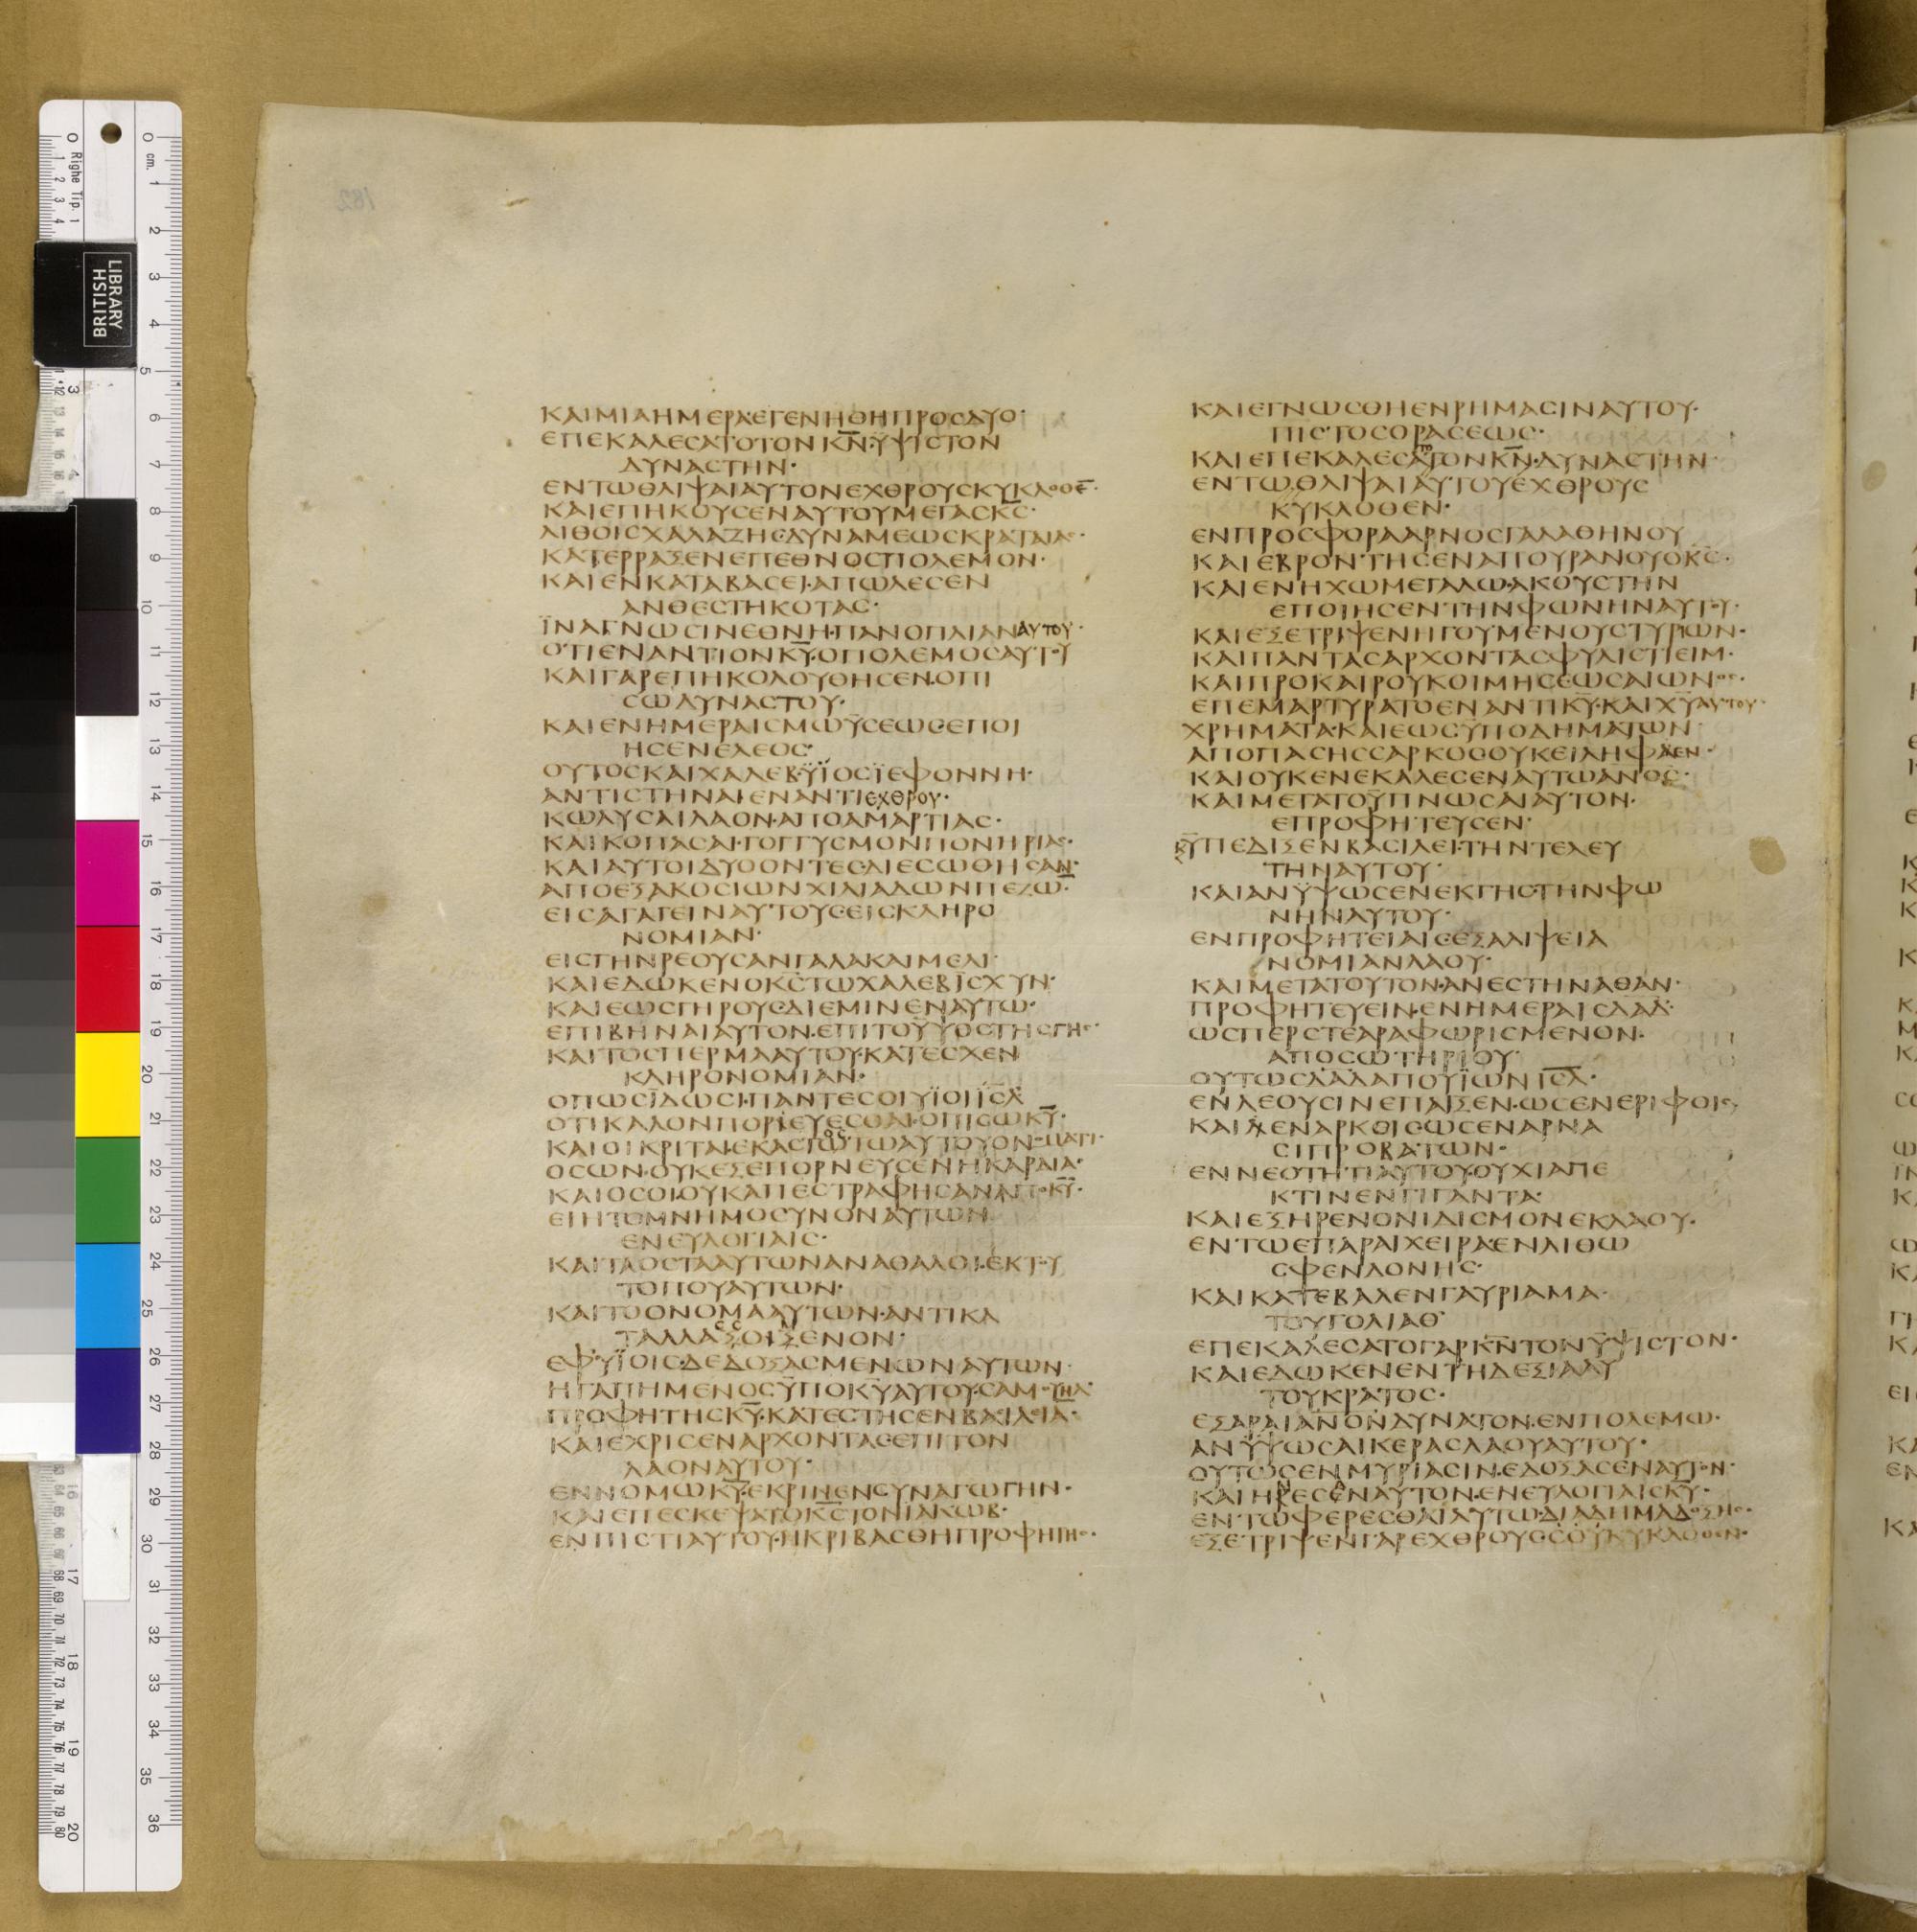 ΚΑΙΜΙΑΗΜΕΡΑΕΓΕΝΗΘΗΠΡΟϹΔΥΟ·
ΕΠΕΚΑΛΕϹΑΤΟΤΟΝΚΝ·ΥΨΙϹΤΟΝ
ΔΥΝΑϹΤΗΝ·
ΕΝΤΩΘΛΙΨΑΙΑΥΤΟΝΕΧΘΡΟΥϹΚΥΚΛΟΘΕ̅·
ΚΑΙΕΠΗΚΟΥϹΕΝΑΥΤΟΥΜΕΓΑϹΚϹ·
ΛΙΘΟΙϹΧΑΛΑΖΗϹΔΥΝΑΜΕΩϹΚΡΑΤΑΙΑϹ·
ΚΑΤΕΡΡΑΞΕΝΕΠΕΘΝΟϹΠΟΛΕΜΟΝ·
ΚΑΙΕΝΚΑΤΑΒΑϹΕΙ·ΑΠΩΛΕϹΕΝ
ΑΝΘΕϹΤΗΚΟΤΑϹ·
ΪΝΑΓΝΩϹΙΝΕΘΝΗ·ΠΑΝΟΠΛΙΑΝΑΥΤΟΥ·
ΟΤΙΕΝΑΝΤΙΟΝΚΥ·ΟΠΟΛΕΜΟϹΑΥΤΟΥ
ΚΑΙΓΑΡΕΠΗΚΟΛΟΥΘΗϹΕΝ·ΟΠΙ
ϹΩΔΥΝΑϹΤΟΥ·
ΚΑΙΕΝΗΜΕΡΑΙϹΜΩΥϹΕΩϹΕΠΟΙ
ΗϹΕΝΕΛΕΟϹ·
ΟΥΤΟϹΚΑΙΧΑΛΕΒ·ΥΪΟϹΪΕΦΟΝΝΗ·
ΑΝΤΙϹΤΗΝΑΙΕΝΑΝΤΙΕΧΘΡΟΥ·
ΚΩΛΥϹΑΙΛΑΟΝ·ΑΠΟΑΜΑΡΤΙΑϹ·
ΚΑΙΚΟΠΑϹΑΙ·ΓΟΓΓΥϹΜΟΝΠΟΝΗΡΙΑϹ·
ΚΑΙΑΥΤΟΙΔΥΟΟΝΤΕϹΔΙΕϹΩΘΗϹΑΝ·
ΑΠΟΕΞΑΚΟϹΙΩΝΧΙΛΙΑΔΩΝΠΕΖΩ̅·
ΕΙϹΑΓΑΓΕΙΝΑΥΤΟΥϹΕΙϹΚΛΗΡΟ
ΝΟΜΙΑΝ·
ΕΙϹΓΗΝΡΕΟΥϹΑΝΓΑΛΑΚΑΙΜΕΛΙ·
ΚΑΙΕΔΩΚΕΝΟΚϹΤΩΧΑΛΕΒΪϹΧΥΝ·
ΚΑΙΕΩϹΓΗΡΟΥϹΔΙΕΜΙΝΕΝΑΥΤΩ·
ΕΠΙΒΗΝΑΙΑΥΤΟΝ·ΕΠΙΤΟΥΨΟϹΤΗϹΓΗϹ·
ΚΑΙΤΟϹΠΕΡΜΑΑΥΤΟΥ·ΚΑΤΕϹΧΕΝ
ΚΛΗΡΟΝΟΜΙΑΝ·
ΟΠΩϹΪΔΩϹΙ·ΠΑΝΤΕϹΟΙΥΪΟΙΪϹΛ
ΟΤΙΚΑΛΟΝΠΟΡΕΥΕϹΘΑΙ·ΟΠΙϹΩΚΥ·
ΟϹΩΝ·ΟΥΚΕΞΕΠΟΡΝΕΥϹΕΝΗΚΑΡΔΙΑ·
ΕΙΗΤΟΜΝΗΜΟϹΥΝΟΝΑΥΤΩΝ
ΕΝΕΥΛΟΓΙΑΙϹ·
ΚΑΙΤΑΟϹΤΑΑΥΤΩΝΑΝΑΘΑΛΟΙ·ΕΚΤΟΥ
ΤΟΠΟΥΑΥΤΩΝ·
ΚΑΙΤΟΟΝΟΜΑΑΥΤΩΝ·ΑΝΤΙΚΑ
ΕΦΥΪΟΙϹ·ΔΕΔΟΞΑϹΜΕΝΩΝΑΥΤΩΝ·
ΗΓΑΠΗΜΕΝΟϹΥΠΟΚΥΑΥΤΟΥ·ϹΑΜΟΥΗΛ·
ΠΡΟΦΗΤΗϹΚΥ·ΚΑΤΕϹΤΗϹΕΝΒΑϹΙΛΙΑ·
ΚΑΙΕΧΡΙϹΕΝΑΡΧΟΝΤΑϹΕΠΙΤΟΝ
ΛΑΟΝΑΥΤΟΥ·
ΕΝΝΟΜΩΚΥ·ΕΚΡΙΝΕΝϹΥΝΑΓΩΓΗΝ·
ΚΑΙΕΠΕϹΚΕΨΑΤΟΚϹΤΟΝΙΑΚΩΒ·
ΕΝΠΙϹΤΙΑΥΤΟΥ·ΗΚΡΙΒΑϹΘΗΠΡΟΦΗΤΗϹ·
ΚΑΙΕΓΝΩϹΘΗΕΝΡΗΜΑϹΙΝΑΥΤΟΥ·
ΠΙϹΤΟϹΟΡΑϹΕΩϹ·
ΚΑΙΕΠΕΚΑΛΕϹΑΤΟΝΚΝ·ΔΥΝΑϹΤΗΝ·
ΕΝΤΩΘΛΙΨΑΙΑΥΤΟΥΕΧΘΡΟΥϹ
ΚΥΚΛΟΘΕΝ·
ΕΝΠΡΟϹΦΟΡΑΑΡΝΟϹΓΑΛΑΘΗΝΟΥ
ΚΑΙΕΒΡΟΝΤΗϹΕΝΑΠΟΥΡΑΝΟΥΟΚϹ·
ΚΑΙΕΝΗΧΩΜΕΓΑΛΩ·ΑΚΟΥϹΤΗΝ
ΕΠΟΙΗϹΕΝΤΗΝΦΩΝΗΝΑΥΤΟΥ·
ΚΑΙΕΞΕΤΡΙΨΕΝΗΓΟΥΜΕΝΟΥϹΤΥΡΙΩΝ·
ΚΑΙΠΑΝΤΑϹΑΡΧΟΝΤΑϹΦΥΛΙϹΤΙΕΙΜ·
ΚΑΙΠΡΟΚΑΙΡΟΥΚΟΙΜΗϹΕΩϹΑΙΩΝΟϹ·
ΕΠΕΜΑΡΤΥΡΑΤΟΕΝΑΝΤΙΚΥ·ΚΑΙΧΥΑΥΤΟΥ·
ΧΡΗΜΑΤΑ·ΚΑΙΕΩϹΥΠΟΔΗΜΑΤΩΝ·
ΑΠΟΠΑϹΗϹϹΑΡΚΟϹΟΥΚΕΙΛΗΦΑΕΝ·
ΚΑΙΟΥΚΕΝΕΚΑΛΕϹΕΝΑΥΤΩΑΝΟϹ·
ΚΑΙΜΕΤΑΤΟΥΠΝΩϹΑΙΑΥΤΟΝ·
ΕΠΡΟΦΗΤΕΥϹΕΝ·
ΚΥΠΕΔΙΞΕΝΒΑϹΙΛΕΙ·ΤΗΝΤΕΛΕΥ
ΤΗΝΑΥΤΟΥ·
ΚΑΙΑΝΥΨΩϹΕΝΕΚΓΗϹΤΗΝΦΩ
ΝΗΝΑΥΤΟΥ·
ΕΝΠΡΟΦΗΤΕΙΑΙϹΕΞΑΛΙΨΕΙΑ
ΝΟΜΙΑΝΛΑΟΥ·
ΚΑΙΜΕΤΑΤΟΥΤΟΝ·ΑΝΕϹΤΗΝΑΘΑΝ·
ΠΡΟΦΗΤΕΥΕΙΝ·ΕΝΗΜΕΡΑΙϹΔΑΔ·
ΩϹΠΕΡϹΤΕΑΡΑΦΩΡΙϹΜΕΝΟΝ·
ΑΠΟϹΩΤΗΡΙΟΥ·
ΟΥΤΩϹΔΑΔΑΠΟΥΪΩΝΙϹΛ·
ΕΝΛΕΟΥϹΙΝΕΠΑΙΞΕΝ·ΩϹΕΝΕΡΙΦΟΙϹ
ΚΑΙΕΝΑΡΚΟΙϹΩϹΕΝΑΡΝΑ
ϹΙΠΡΟΒΑΤΩΝ·
ΕΝΝΕΟΤΗΤΙΑΥΤΟΥ·ΟΥΧΙΑΠΕ
ΚΤΙΝΕΝΓΙΓΑΝΤΑ·
ΚΑΙΕΞΗΡΕΝΟΝΙΔΙϹΜΟΝΕΚΛΑΟΥ·
ΕΝΤΩΕΠΑΡΑΙΧΕΙΡΑΕΝΛΙΘΩ
ϹΦΕΝΔΟΝΗϹ·
ΚΑΙΚΑΤΕΒΑΛΕΝΓΑΥΡΙΑΜΑ·
ΤΟΥΓΟΛΙΑΘ·
ΕΠΕΚΑΛΕϹΑΤΟΓΑΡΚΝΤΟΝΥΨΙϹΤΟΝ·
ΚΑΙΕΔΩΚΕΝΕΝΤΗΔΕΞΙΑΑΥ
ΤΟΥΚΡΑΤΟϹ·
ΕΞΑΡΑΙΑΝΟΝΔΥΝΑΤΟΝ·ΕΝΠΟΛΕΜΩ·
ΑΝΥΨΩϹΑΙΚΕΡΑϹΛΑΟΥΑΥΤΟΥ·
ΟΥΤΩϹΕΝΜΥΡΙΑϹΙΝ·ΕΔΟΞΑϹΕΝΑΥΤΟΝ·
ΚΑΙΗΡΕϹΕΝΑΥΤΟΝ·ΕΝΕΥΛΟΓΙΑΙϹΚΥ·
ΕΝΤΩΦΕΡΕϹΘΑΙΑΥΤΩ·ΔΙΑΔΗΜΑΔΟΞΗϹ·
ΕΞΕΤΡΙΨΕΝΓΑΡΕΧΘΡΟΥϹϹΟΥΚΥΚΛΟΘΕΝ·
LIBRARY
BRITISH